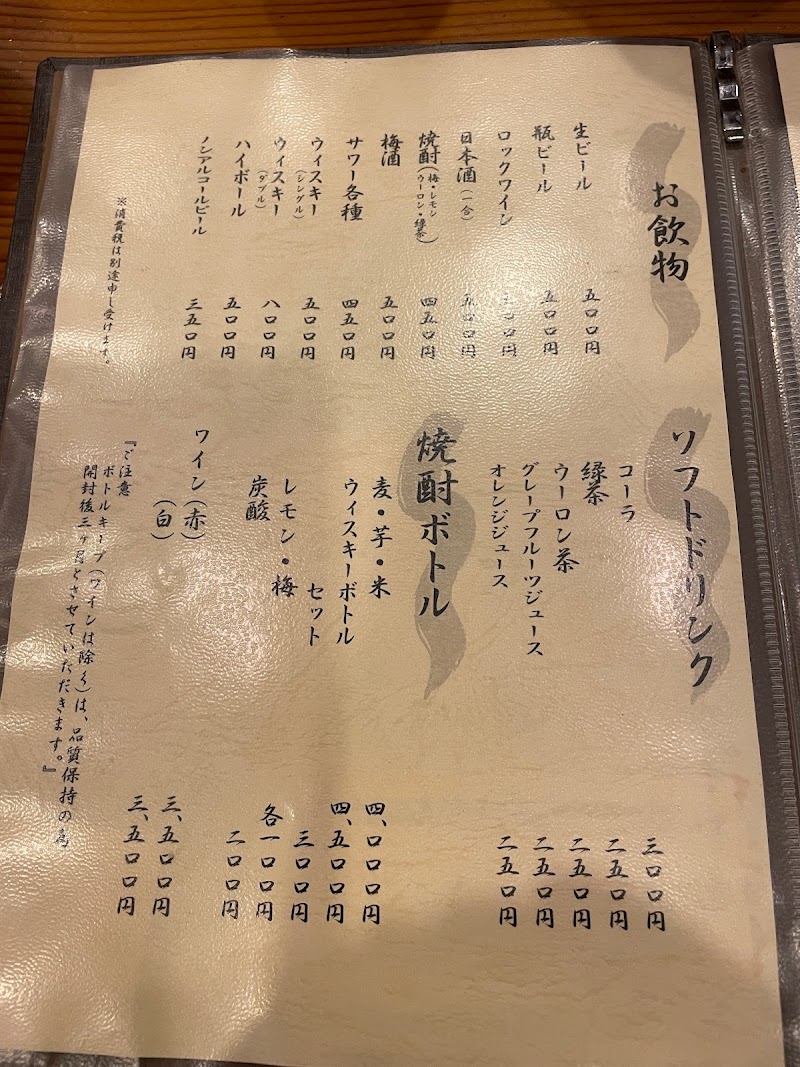 お飲物
生ビール 五〇〇円
瓶ビール 五〇〇円
ロックワイン
日本酒(一合) 五〇〇円
焼酎(梅・レモン
ウーロン・緑茶) 四五〇円
梅酒 五〇〇円
サワー各種 四五〇円
ウィスキー(シングル) 五〇〇円
ウィスキー(ダブル) 八〇〇円
ハイボール 五〇〇円
ノンアルコールビール 三五〇円
※消費税は別途申し受けます。
ソフトドリンク
コーラ 三〇〇円
緑茶 二五〇円
ウーロン茶 二五〇円
グレープフルーツジュース 二五〇円
オレンジジュース 二五〇円
焼酎ボトル
麦・芋・米 四、〇〇〇円
ウィスキーボトル 四、五〇〇円
セット 三〇〇円
レモン・梅 各一〇〇円
炭酸 二〇〇円
ワイン(赤) 三、五〇〇円
(白) 三、五〇〇円
『ご注意
ボトルキープ(ワインは除く)は、品質保持の為
開封後三ヶ月とさせていただきます。』